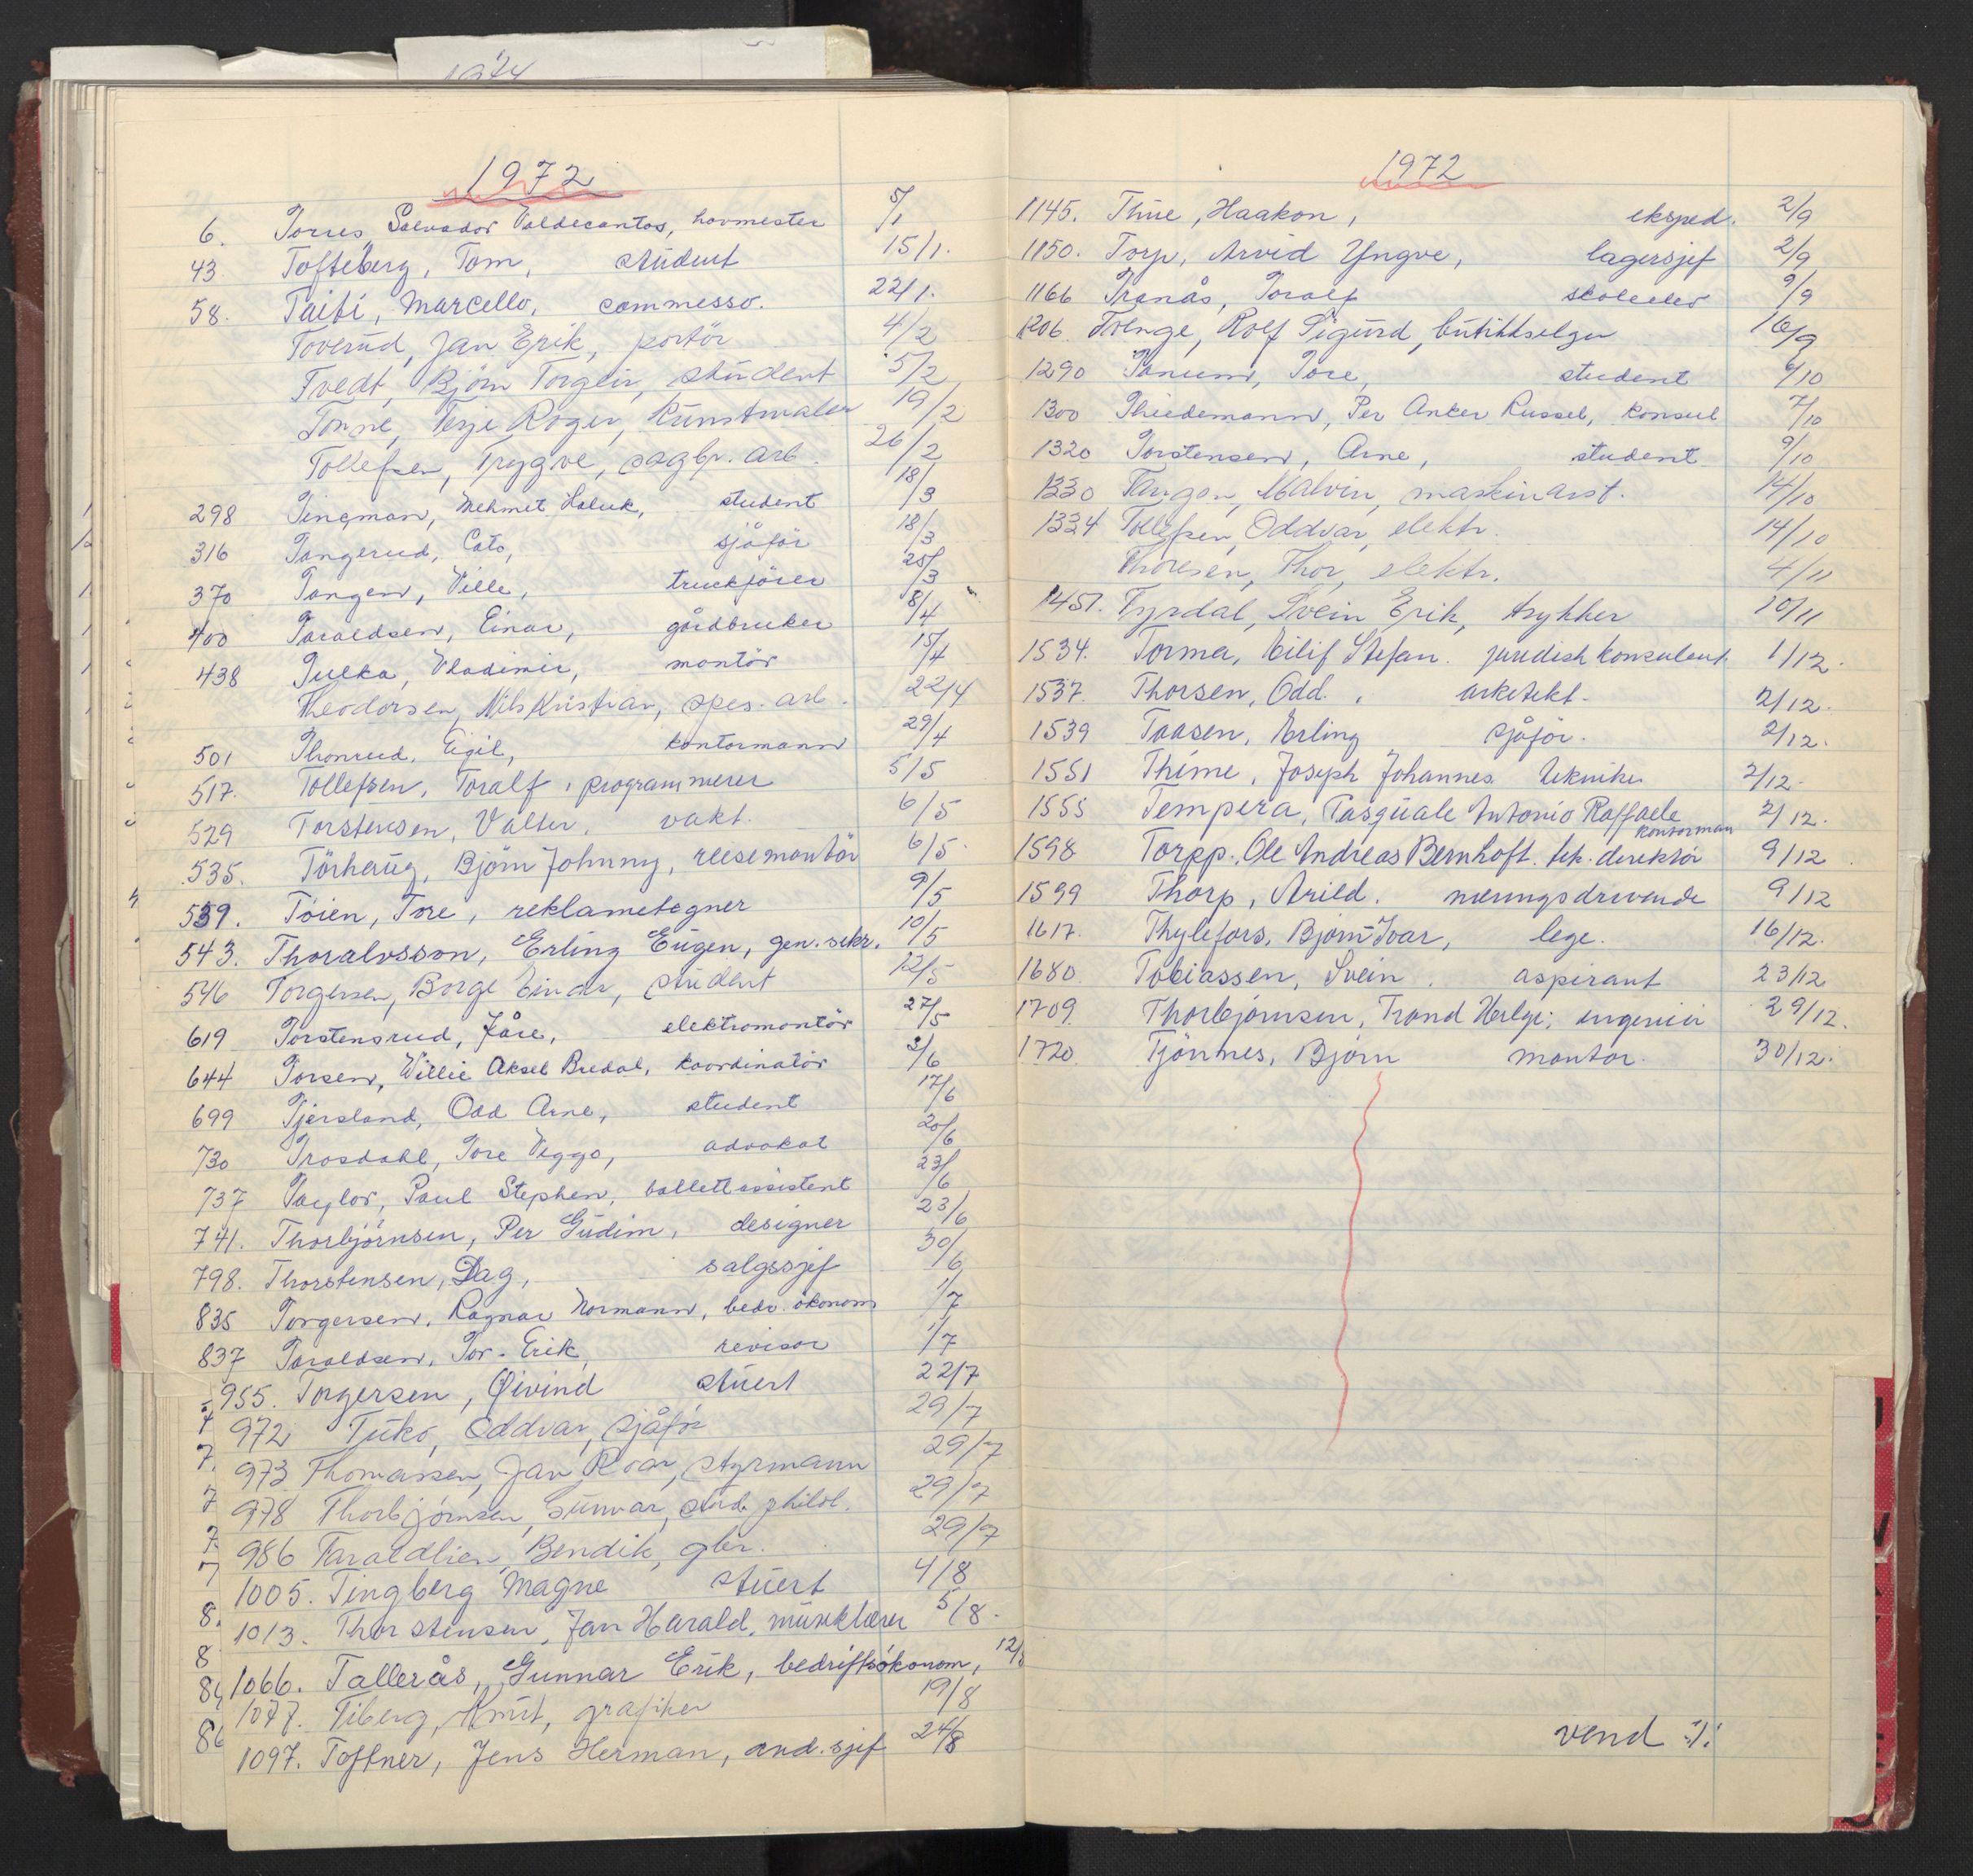 1974
1972
6. Torres Salvador Valdecantos, hovmester 5/1
43. Tofteberg, Tom, student 15/1.
58. Taiti, Marcello, commesso. 22/1.
Toverud, Jan Erik, portör 4/2
Tvedt, Björn Torgeir, student 5/2
Tonne, Terje Roger, Kunstmaler 19/2
Tollefsen, Trygve, sagbr. arb. 26/2
298 Tingman, Mehmet Haluk, student 18/3
316 Tangerud, Cato, sjåför 18/3
370 Tangen, Ville, truckförer 25/3
400 Taraldsen, Einar, gårdbruker 8/4
438 Tulka, Vladimir, montör 15/4
Theodorsen, Nils Kristian, spes. arb. 22/4
501 Thonrud, Eigil, kontormann 29/4
517. Tollefsen, Toralf, programmerer 5/5
529 Torstensen, Valter, vakt. 6/5
535. Törhaug, Björn Johnny, reisemontör 6/5
539. Töien, Tore, reklametegner 9/5
543. Thoralvsson, Erling Eugen, gen. sekr. 10/5
546 Torgersen, Borge Einar, student 12/5
619 Torstensrud, Kåre, elektromontör 27/5
644 Torsen, Willie Aksel Bredal, koordinatör 3/6
699 Tjersland, Odd Arne, student 17/6
730 Trosdahl, Tore Viggo, advokat 20/6
737 Taylor, Paul Stephen, ballettassistent 23/6
741. Thorbjörnsen, Per Gudim, designer 23/6
798. Thorstensen, Dag, salgssjef 30/6
835 Torgersen, Ragnar Normann, bedr. ökonom 1/7
837 Taraldsen, Tor-Erik, revisor 1/7
955. Torgersen, Öivind stuert 22/7
972 Tuko, Oddvar, sjåför 29/7
973 Thomassen, Jan Roar, styrmann 29/7
978 Thorbjörnsen, Gunvar, stud. philol. 29/7
986 Taraldlien, Bendik, gbr. 29/7
1005. Tingberg Magne stuert 4/8
1013. Thorstensen, Jan Harald, musiklærer 5/8.
1066. Tallerås, Gunnar Erik, bedriftsökonom, 12/8
1077. Tiberg, Knut, grafiker 19/8
1097. Toftner, Jens Herman, and. sjef 24/8
1972
1145. Thue, Haakon, eksped. 2/9
1150. Torp, Arvid Yngve, lagersjef 2/9
1166 Tranås, Toralf skoleelev 9/9
1206. Tvenge, Rolf Sigurd, butikkselger 16/9
1290 Tanum, Tore, student 6/10
1300 Thiedemann, Per Anker Russel, konsul 7/10
1320 Torstensen, Arne, student 9/10
1330 Tangen, Malvin, maskinarb. 14/10
1334 Tollefsen, Oddvar, elektr. 14/10
Thoresen, Thor, elektr. 4/11
1451. Tyrdal, Svein Erik, trykker 10/11
1534. Torma, Eilif Stefan. juridisk konsulent. 1/12.
1537. Thorsen, Odd. arkitekt. 2/12.
1539 Taasen, Erling sjåför. 2/12.
1551 Thime, Joseph Johannes tekniker 2/12.
1555 Tempera, Pasquale Antonio Raffaele 2/12.
kontorman
1598 Torpp, Ole Andreas Bernhoft. tek. direktör 9/12.
1599 Thorp, Arild. næringsdrivende 9/12
1617. Thylefors, Björn-Ivar, lege. 16/12.
1680. Tobiassen, Svein. aspirant 23/12
1709. Thorbjörnsen, Trond Helge; ingeniör 29/12.
1720. Tjönnes, Björn montör. 30/12.
vend ./.